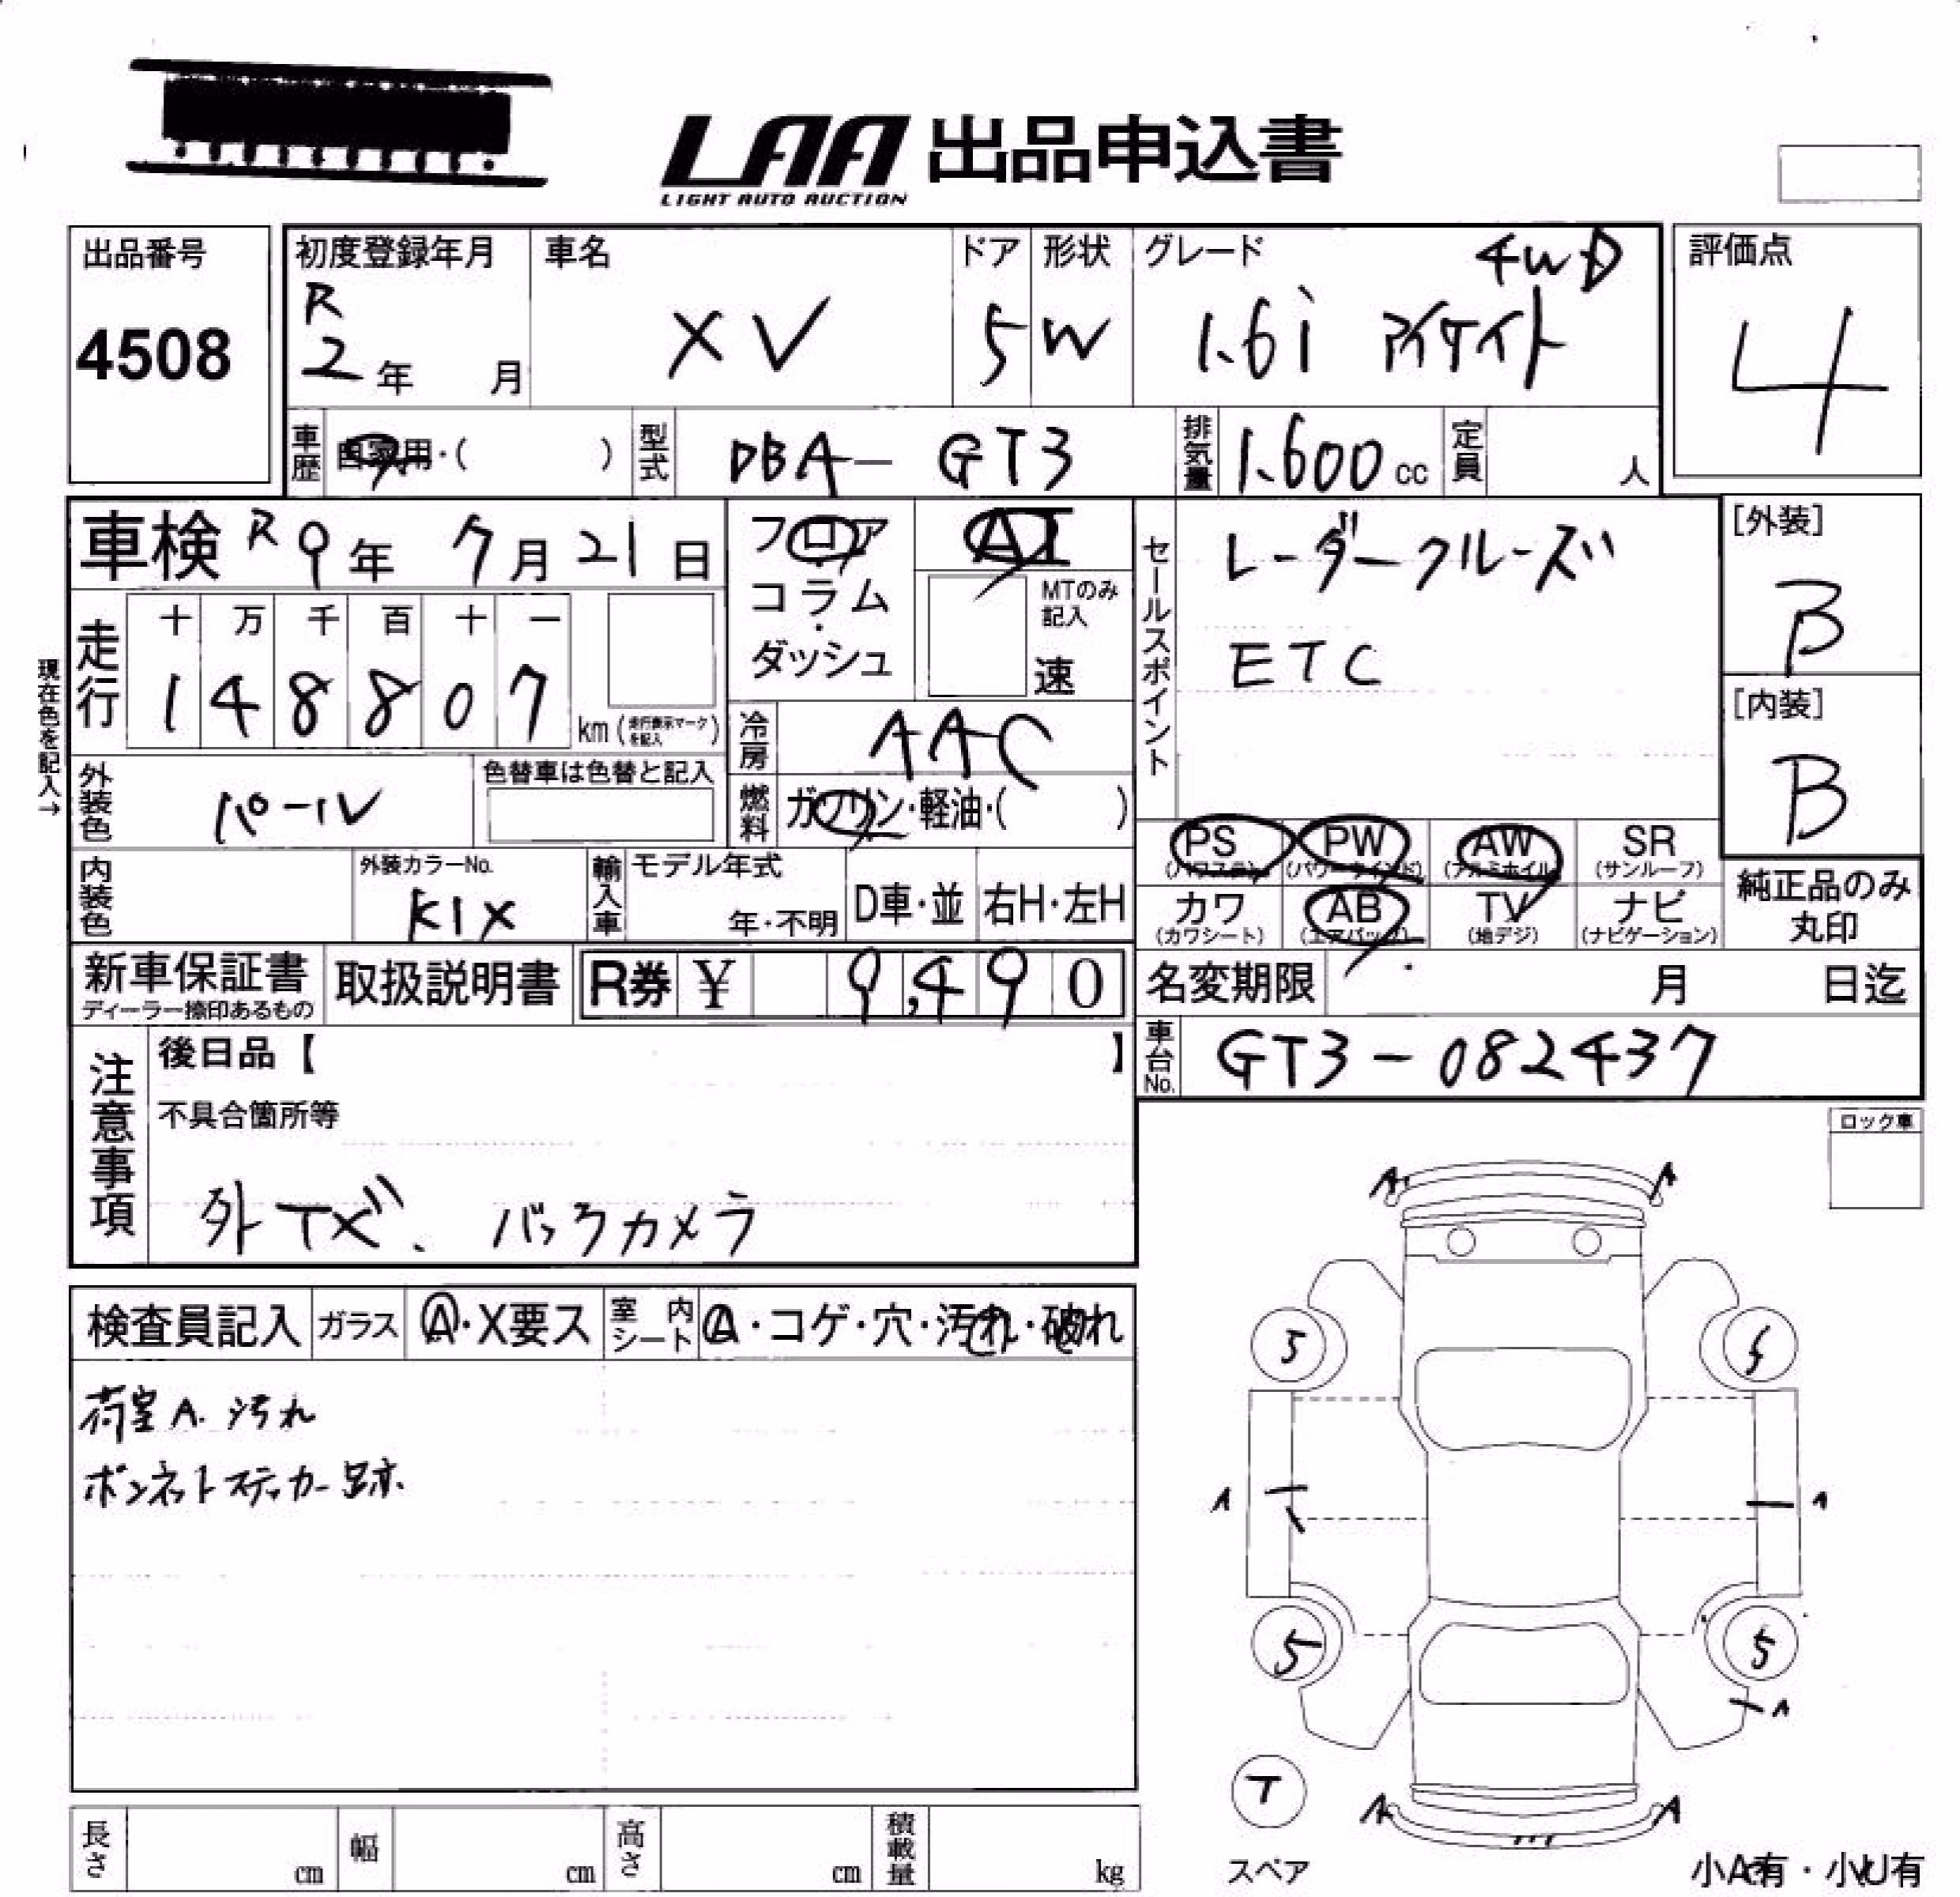 LAA 出品申込書
LIGHT AUTO AUCTION
出品番号
4508
初度登録年月
R
2年 月
車名
XV
ドア
5
形状
W
グレード
4WD
1.6i アイサイト
評価点
4
車歴
自家用・( )
型式
DBA- GT3
排気量
1.600 cc
定員
人
車検 R9年 7月 21日
走行
十 万 千 百 十 一
1 4 8 8 0 7
km (走行表示マークを記入)
現在色を記入→
フロア
コラム
・
ダッシュ
AT
MTのみ
記入
速
冷房
AAC
燃料
ガソリン・軽油・( )
外装色
パール
色替車は色替と記入
内装色
外装カラーNo.
K1X
輸入車
モデル年式
年・不明
D車・並
右H・左H
セールスポイント
レーダークルーズ
ETC
[外装]
B
[内装]
B
PS
(パワステ)
PW
(パワーウインド)
AW
(アルミホイル)
SR
(サンルーフ)
カワ
(カワシート)
AB
(エアバック)
TV
(地デジ)
ナビ
(ナビゲーション)
純正品のみ
丸印
新車保証書
ディーラー捺印あるもの
取扱説明書
R券 ¥ 9,490
名変期限 月 日迄
車台No.
GT3-082437
注意事項
後日品【 】
不具合箇所等
外TV. バックカメラ
ロック車
検査員記入
ガラス
A・X要ス
室内
シート
A・コゲ・穴・汚れ・破れ
荷室A. 汚れ
ボンネットステッカー跡
A A
5 5
A A
5 5
A
T
スペア
A A
小A有・小U有
長さ cm
幅 cm
高さ cm
積載量 kg